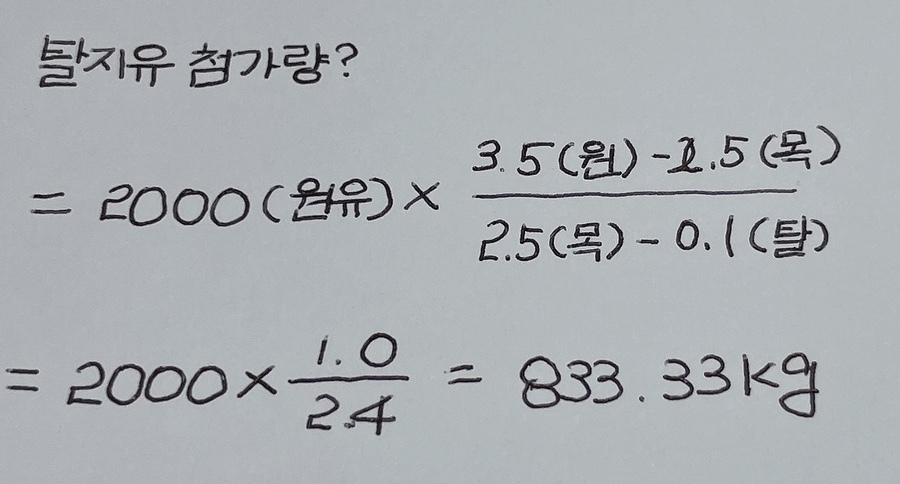 탈지유 첨가량?
= 2000(원유) × 3.5(원) - 2.5(목) / 2.5(목) - 0.1(탈)
= 2000 × 1.0 / 2.4 = 833.33kg